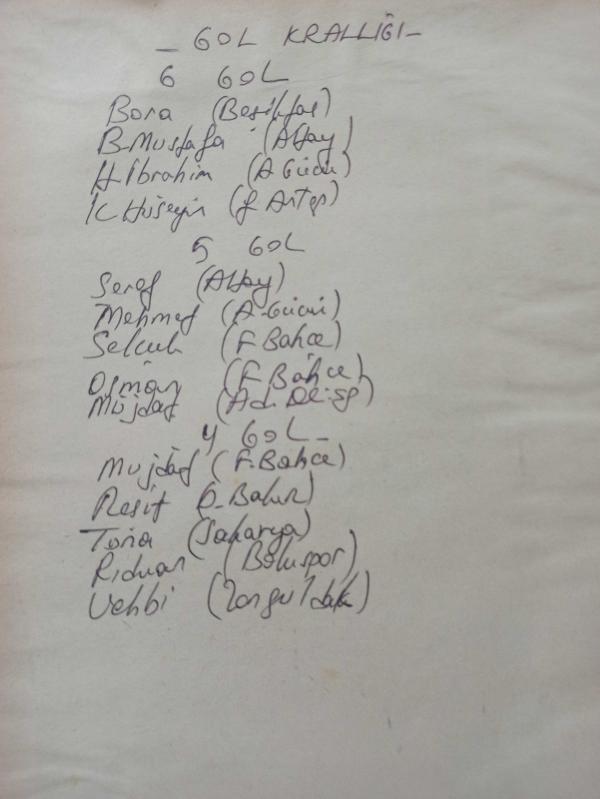 _ GOL KRALLIĞI_
6 GOL
Bora (Beşiktaş)
B.Mustafa (Altay)
H.İbrahim (A.Gücü)
K.Hüseyin (G.Antep)
5 GOL
Şeref (Altay)
Mehmet (A.Gücü)
Selçuk (F.Bahçe)
Osman (F.Bahçe)
Müjdat (Ad.De.sp)
4 GOL_
Mujdat (F.Bahçe)
Reşit
Tuna (Sakarya)
Rıdvan (Boluspor)
Vehbi (Zonguldak)